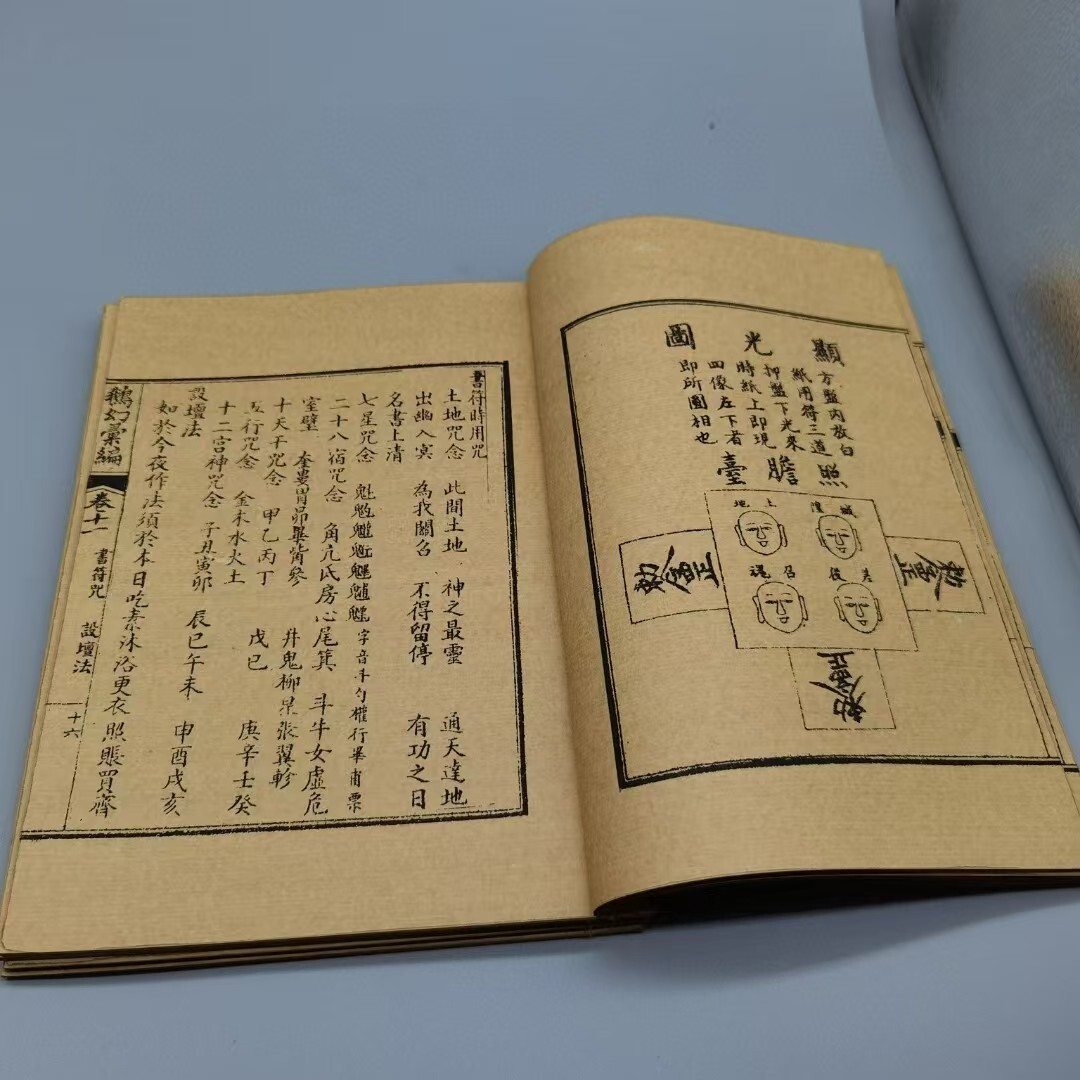 顯光圖
方盤內放白
紙用符三道
押盤下光來
時紙上即現
四像左下者
即所圓相也
照膽臺
城隍
土地
差役
召魂
書符時用咒
土地咒念 此間土地 神之最靈 通天達地
出幽入冥 為我關召 不得留停 有功之日
名書上清
七星咒念 魁𩲃𩵄魓魒 字音手勺權行畢甫票
二十八宿咒念 角亢氐房心尾箕 斗牛女虛危
室壁 奎婁胃昴畢觜參 井鬼柳星張翼軫
十天干咒念 甲乙丙丁 戊己 庚辛壬癸
五行咒念 金木水火土
十二宮神咒念 子丑寅卯 辰巳午未 申酉戌亥
設壇法
如於今夜作法須於本日吃素沐浴更衣照賬買齊
鵝幻彙編 卷十一 書符咒 設壇法 十六